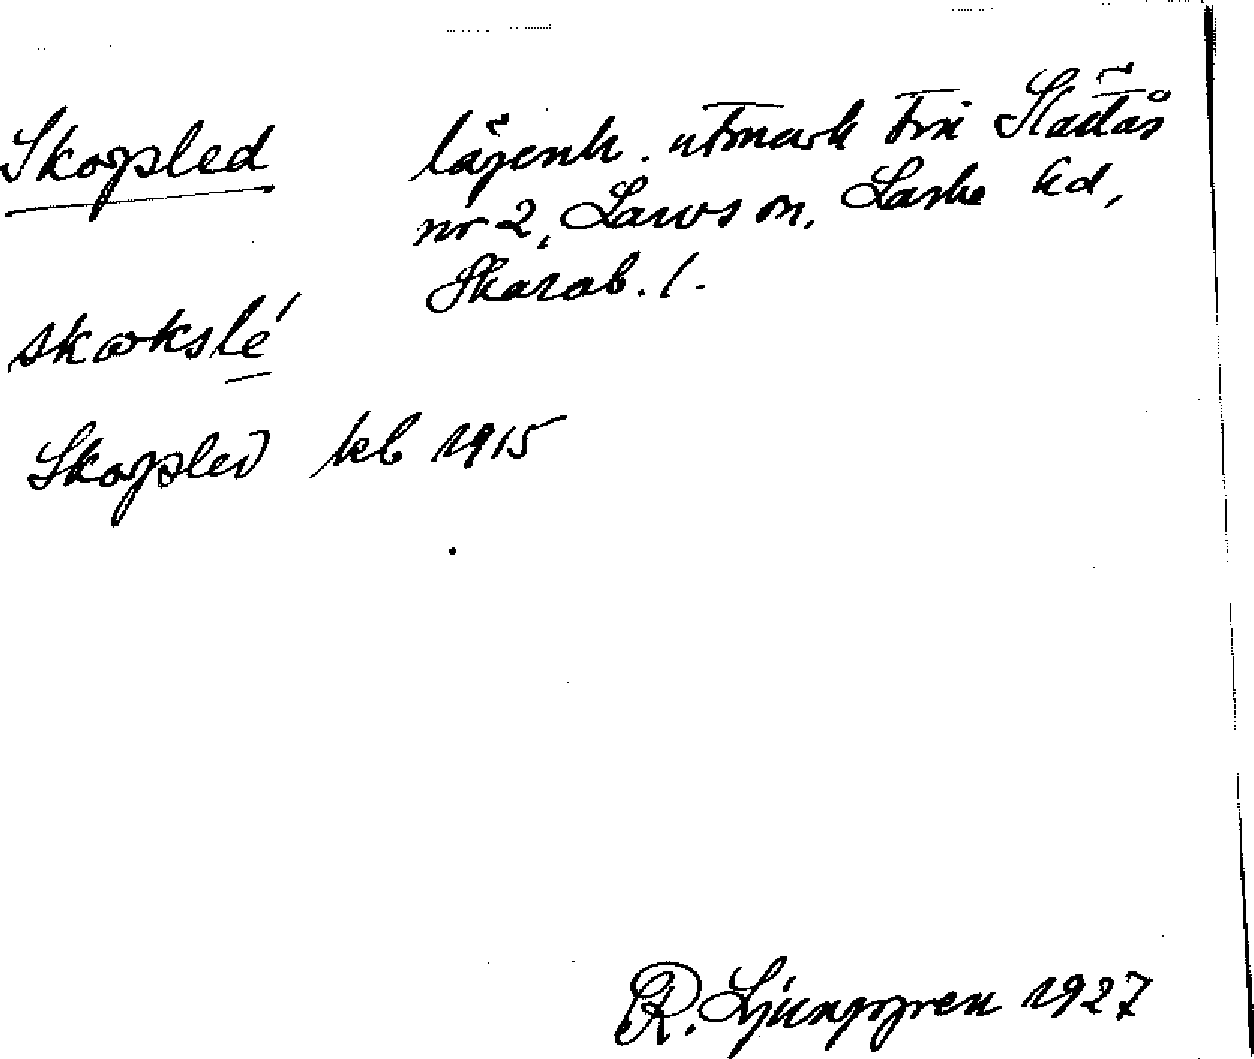 Skogsled lägenh. utmark till Slädås
nr 2, Larvs sn, Laske hd,
Skarab. l.
skokslé
Skogsled kb 1915
R. Ljunggren 1927